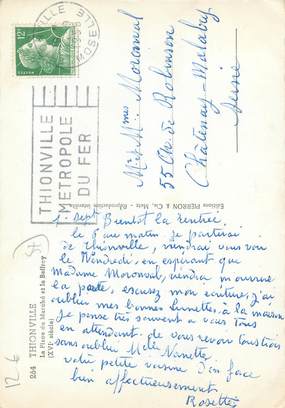 THIONVILLE
MOSELLE
12F
THIONVILLE
METROPOLE
DU FER
M. et Mmes Moronval
55 Av. de Robinson
Châtenay-Malabry
Seine
Editions PIERRON & Cie, Metz - Reproduction interdite
264 THIONVILLE
La Place du Marché et le Beffroy
(XVIe siècle)
Sept Bientôt la rentrée
le matin je partirai
de Thionville, viendrai vous voir
le Vendredi, en espérant que
Madame Moronval, viendra m'ouvrir
la porte, excusez mon écriture, j'ai
oublier mes bonnes lunettes, à la maison
Je pense très souvent à vous tous
en attendant de vous revoir tous trois
sans oublier Melle Nanette
votre petite
bien affectueusement
Rosette
12 6